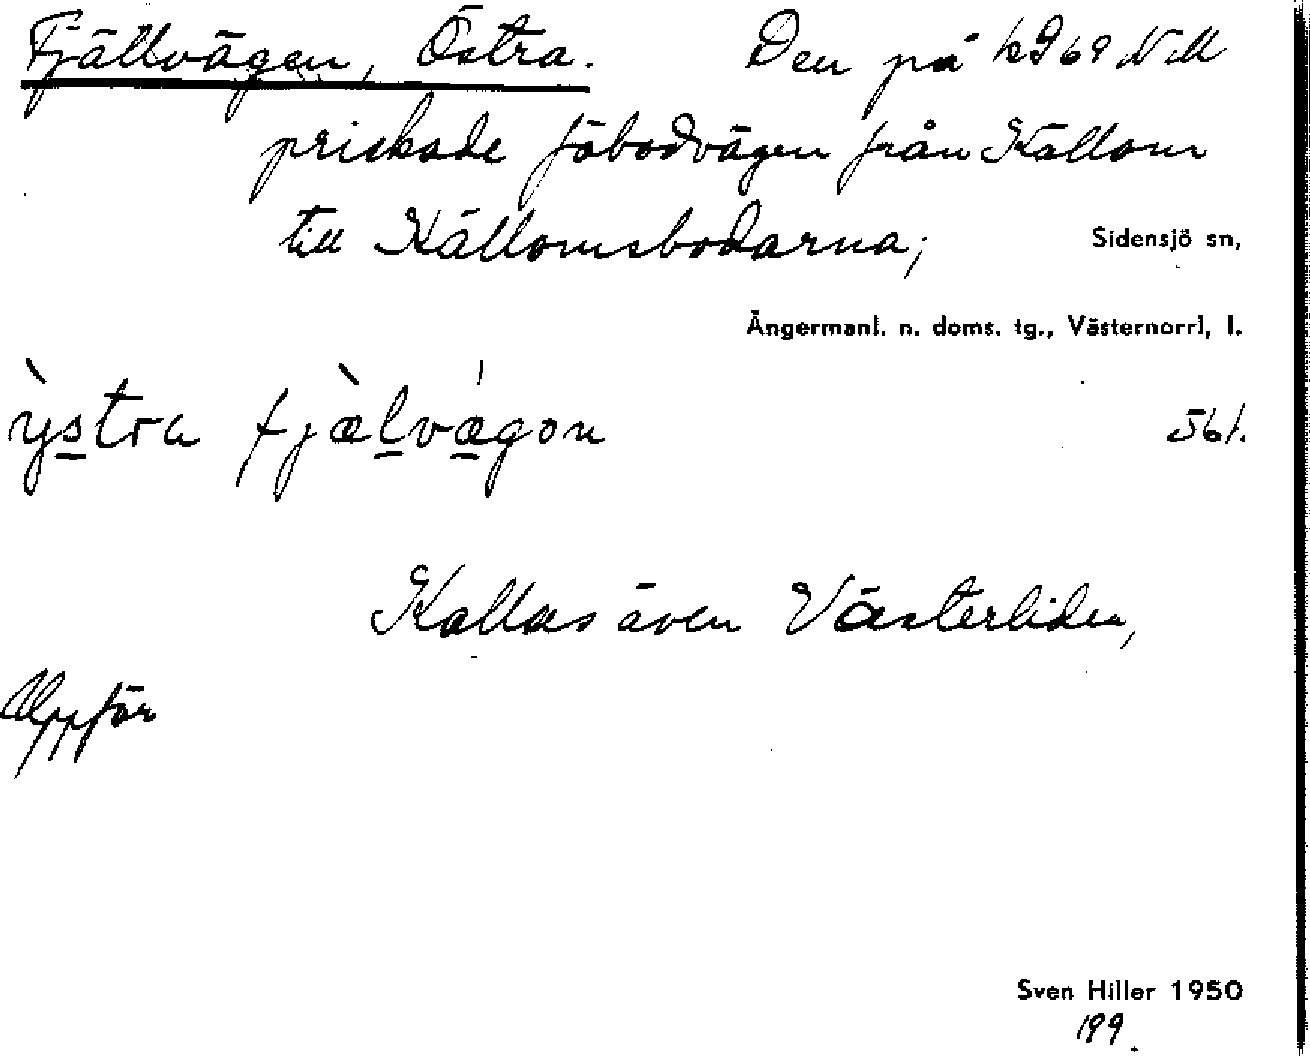 Fjällvägen, Östra. Den på k269 NM
prickade fäbodvägen från Källom
till Källomsbodarna; Sidensjö sn,
Ångermanl. n. doms. tg., Västernorrl, l.
ỳstra fjælvægon 561.
Kallas även Västerliden,
Uppför
Sven Hiller 1950
199.